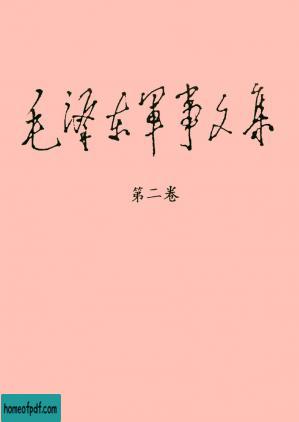 毛泽东军事文集
第二卷
homeofpdf.com